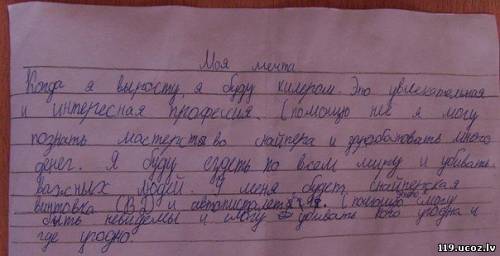 Моя мечта
Когда я выросту, я буду килером. Это увлекательная
и интересная професия. С помощю нее я могу
познать мастерство снайпера и зарабатовать много
денег. Я буду ездеть по всем миру и убивать
важных людей. У меня будет снайперская
винтовка и автопистолет. С помощю могу
быть невидемым и смогу убивать кого угодна и
где угодно.
119.ucoz.lv